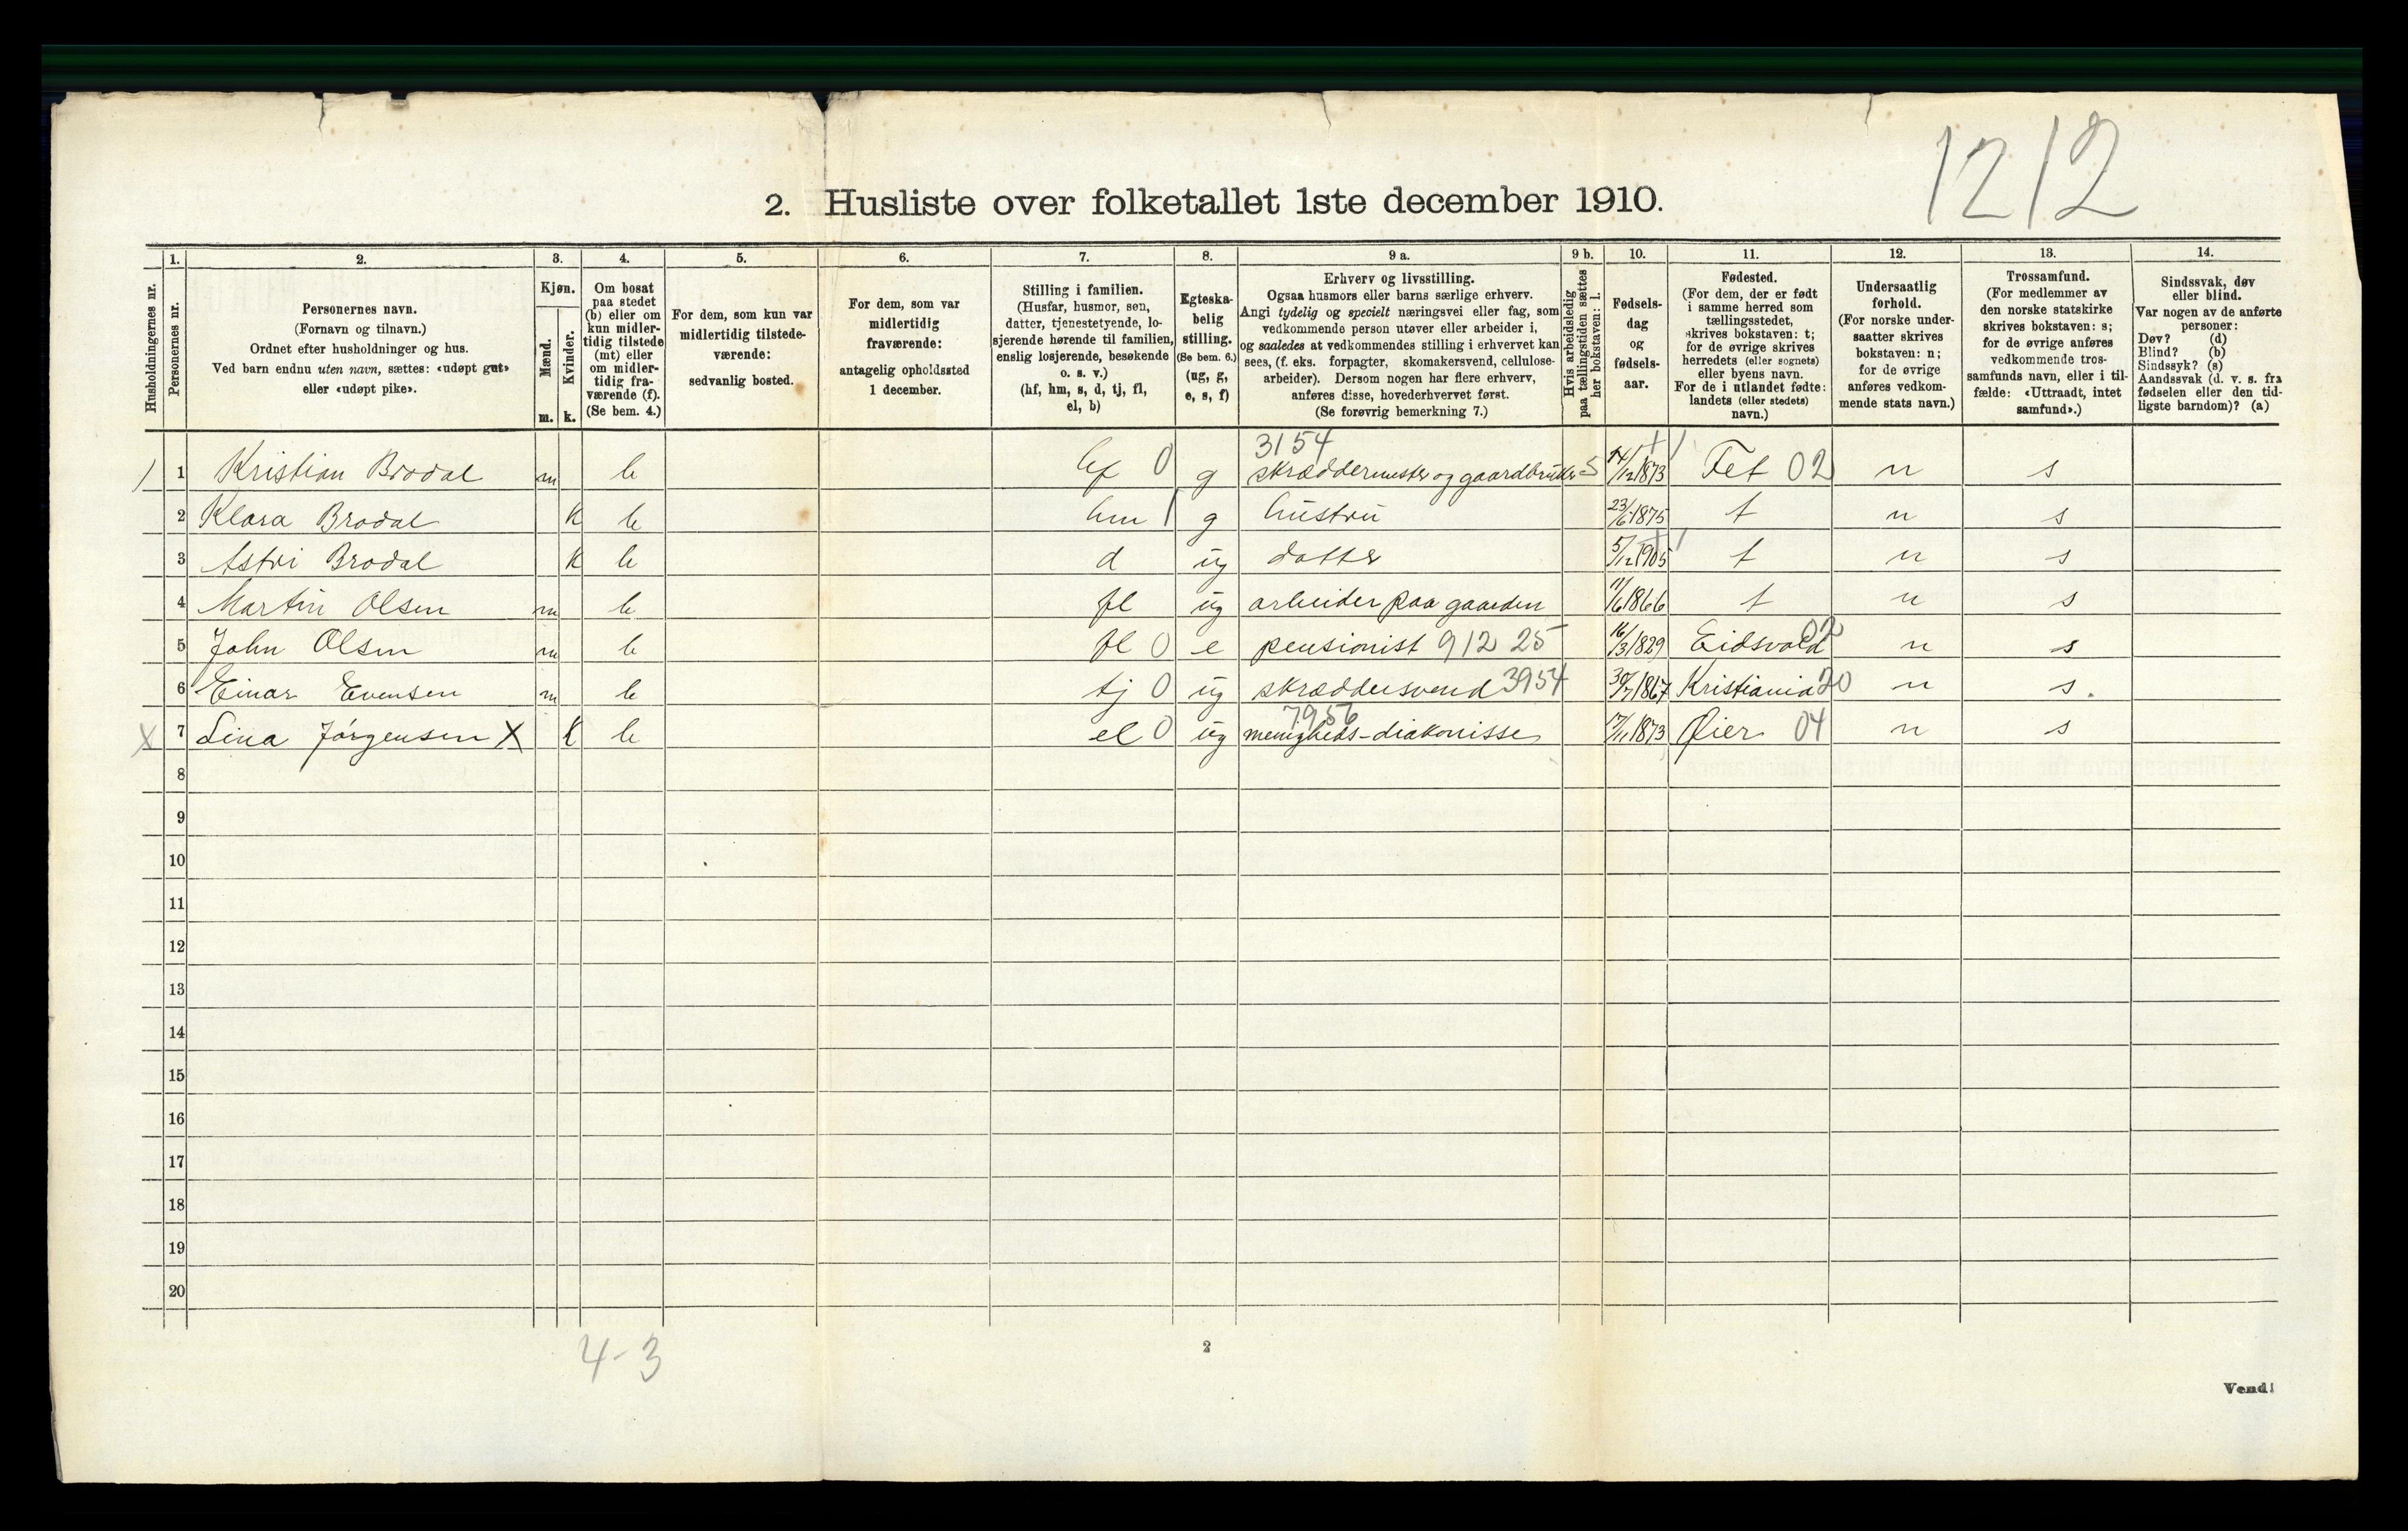 1212
2. Husliste over folketallet 1ste december 1910.
Husholdningernes nr.
1. Personernes nr.
2. Personernes navn.
(Fornavn og tilnavn.)
Ordnet efter husholdninger og hus.
Ved barn endnu uten navn, sættes: «udøpt gut»
eller «udøpt pike».
3. Kjøn.
Mænd. m.
Kvinder. k.
4. Om bosat
paa stedet
(b) eller om
kun midler-
tidig tilstede
(mt) eller
om midler-
tidig fra-
værende (f).
(Se bem. 4.)
5. For dem, som kun var
midlertidig tilstede-
værende:
sedvanlig bosted.
6. For dem, som var
midlertidig
fraværende:
antagelig opholdssted
1 december.
7. Stilling i familien.
(Husfar, husmor, søn,
datter, tjenestetyende, lo-
sjerende hørende til familien,
enslig losjerende, besøkende
o. s. v.)
(hf, hm, s, d, tj, fl,
el, b)
8. Egteska-
belig
stilling.
(Se bem. 6.)
(ug, g,
e, s, f)
9 a. Erhverv og livsstilling.
Ogsaa husmors eller barns særlige erhverv.
Angi tydelig og specielt næringsvei eller fag, som
vedkommende person utøver eller arbeider i,
og saaledes at vedkommendes stilling i erhvervet kan
sees, (f. eks. forpagter, skomakersvend, cellulose-
arbeider). Dersom nogen har flere erhverv,
anføres disse, hovederhvervet først.
(Se forøvrig bemerkning 7.)
9 b. Hvis arbeidsledig
paa tællingstiden sættes
her bokstaven: l.
10. Fødsels-
dag
og
fødsels-
aar.
11. Fødested.
(For dem, der er født
i samme herred som
tællingsstedet,
skrives bokstaven: t;
for de øvrige skrives
herredets (eller sognets)
eller byens navn.
For de i utlandet fødte:
landets (eller stedets)
navn.)
12. Undersaatlig
forhold.
(For norske under-
saatter skrives
bokstaven: n;
for de øvrige
anføres vedkom-
mende stats navn.)
13. Trossamfund.
(For medlemmer av
den norske statskirke
skrives bokstaven: s;
for de øvrige anføres
vedkommende tros-
samfunds navn, eller i til-
fælde: «Uttraadt, intet
samfund».)
14. Sindssvak, døv
eller blind.
Var nogen av de anførte
personer:
Døv? (d)
Blind? (b)
Sindssyk? (s)
Aandssvak (d. v. s. fra
fødselen eller den tid-
ligste barndom)? (a)
3154
1 Kristian Brodal m b hf 0 g skræddermester og gaardbruker 14/12 1873 Fet 02 n s
2 Klara Brodal k b hm 1 g hustru 23/6 1875 t n s
3 Astri Brodal k b d ug datter 5/12 1905 t n s
4 Martin Olsen m b fl ug arbeider paa gaarden 11/6 1866 t n s
5 John Olsen m b fl 0 e pensionist 912 25 16/3 1829 Eidsvold 02 n s
6 Einar Evensen m b tj 0 ug skræddersvend 3954 30/7 1867 Kristiania 20 n s.
7956
X 7 Lina Jørgensen X k b el 0 ug menigheds-diakonisse 17/11 1873 Øier 04 n s
8
9
10
11
12
13
14
15
16
17
18
19
20
4-3
2
Vend!